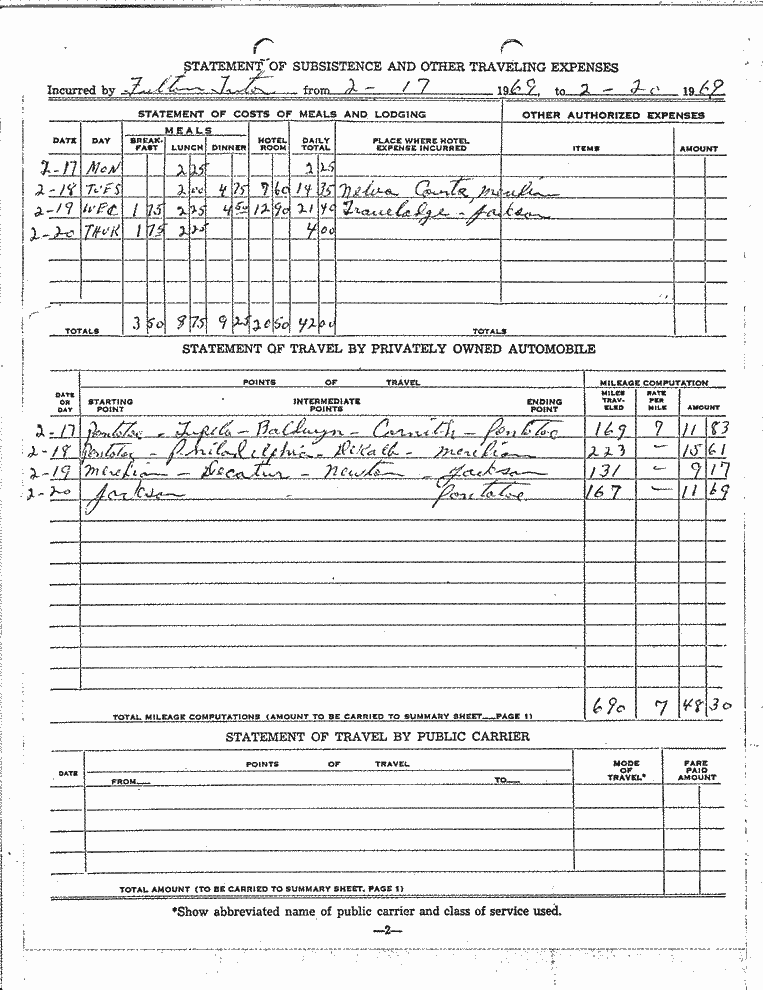 STATEMENT OF SUBSISTENCE AND OTHER TRAVELING EXPENSES
Incurred by Fulton Tutor from 2 - 17 1969, to 2 - 20 1969
STATEMENT OF COSTS OF MEALS AND LODGING OTHER AUTHORIZED EXPENSES
MEALS
DATE DAY BREAK-FAST LUNCH DINNER HOTEL ROOM DAILY TOTAL PLACE WHERE HOTEL EXPENSE INCURRED ITEMS AMOUNT
2-17 MON 2 25 2 25
2-18 TUES 2 00 4 75 7 60 14 35 Courts, Meridian
2-19 WED 1 75 2 25 4 50 12 90 21 40 Travelodge - Jackson
2-20 THUR 1 75 2 25 4 00
TOTALS 3 50 8 75 9 25 20 50 42 00 TOTALS
STATEMENT OF TRAVEL BY PRIVATELY OWNED AUTOMOBILE
POINTS OF TRAVEL MILEAGE COMPUTATION
DATE OR DAY STARTING POINT INTERMEDIATE POINTS ENDING POINT MILES TRAV-ELED RATE PER MILE AMOUNT
2-17 Pontotoc - Tupelo - Baldwyn - Corinth - Pontotoc 169 7 11 83
2-18 Pontotoc - Philadelphia - DeKalb - Meridian 223 — 15 61
2-19 Meridian - Decatur - Newton - Jackson 131 — 9 17
2-20 Jackson Pontotoc 167 — 11 69
TOTAL MILEAGE COMPUTATIONS (AMOUNT TO BE CARRIED TO SUMMARY SHEET—PAGE 1) 690 7 48 30
STATEMENT OF TRAVEL BY PUBLIC CARRIER
DATE POINTS OF TRAVEL MODE OF TRAVEL* FARE PAID AMOUNT
FROM TO
TOTAL AMOUNT (TO BE CARRIED TO SUMMARY SHEET, PAGE 1)
*Show abbreviated name of public carrier and class of service used.
—2—